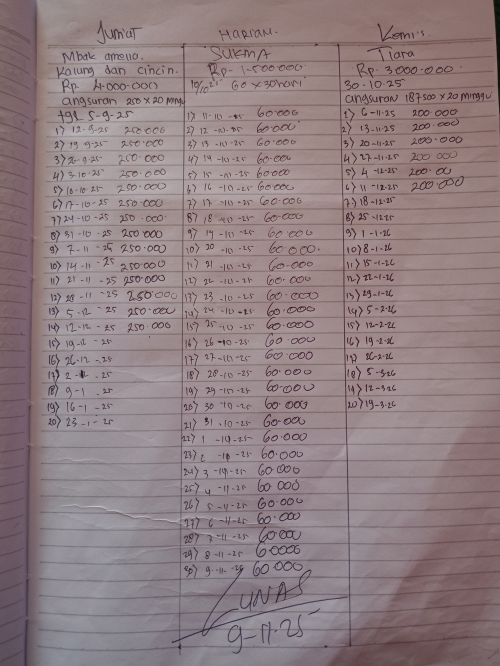 Jumat
Mbak amelia.
Kalung dan cincin.
Rp. 4.000.000
angsuran 250 x 20 minggu
5-9-25
1) 12-9-25 250.000
2) 19-9-25 250.000
3) 26-9-25 250.000
4) 3-10-25 250.000
5) 10-10-25 250.000
6) 17-10-25 250.000
7) 24-10-25 250.000
8) 31-10-25 250.000
9) 7-11-25 250.000
10) 14-11-25 250.000
11) 21-11-25 250.000
12) 28-11-25 250.000
13) 5-12-25 250.000
14) 12-12-25 250.000
15) 19-12-25
16) 26-12-25
17) 2-1-25
18) 9-1-25
19) 16-1-25
20) 23-1-25
HARIAN.
SUKMA
Rp. 1.500.000
60 x 30 hari
1) 11-10-25 60.000
2) 12-10-25 60.000
3) 13-10-25 60.000
4) 14-10-25 60.000
5) 15-10-25 60.000
6) 16-10-25 60.000
7) 17-10-25 60.000
8) 18-10-25 60.000
9) 19-10-25 60.000
10) 20-10-25 60.000
11) 21-10-25 60.000
12) 22-10-25 60.000
13) 23-10-25 60.000
14) 24-10-25 60.000
15) 25-10-25 60.000
16) 26-10-25 60.000
17) 27-10-25 60.000
18) 28-10-25 60.000
19) 29-10-25 60.000
20) 30-10-25 60.000
21) 31-10-25 60.000
22) 1-11-25 60.000
23) 2-11-25 60.000
24) 3-11-25 60.000
25) 4-11-25 60.000
26) 5-11-25 60.000
27) 6-11-25 60.000
28) 7-11-25 60.000
29) 8-11-25 60.000
30) 9-11-25 60.000
LUNAS
9-11-25
Kemis.
Tiara
Rp. 3.000.000
30-10-25
angsuran 187500 x 20 minggu
1) 6-11-25 200.000
2) 13-11-25 200.000
3) 20-11-25 200.000
4) 27-11-25 200.000
5) 4-12-25 200.00
6) 11-12-25 200.000
7) 18-12-25
8) 25-12-25
9) 1-1-26
10) 8-1-26
11) 15-1-26
12) 22-1-26
13) 29-1-26
14) 5-2-26
15) 12-2-26
16) 19-2-26
17) 26-2-26
18) 5-3-26
19) 12-3-26
20) 19-3-26